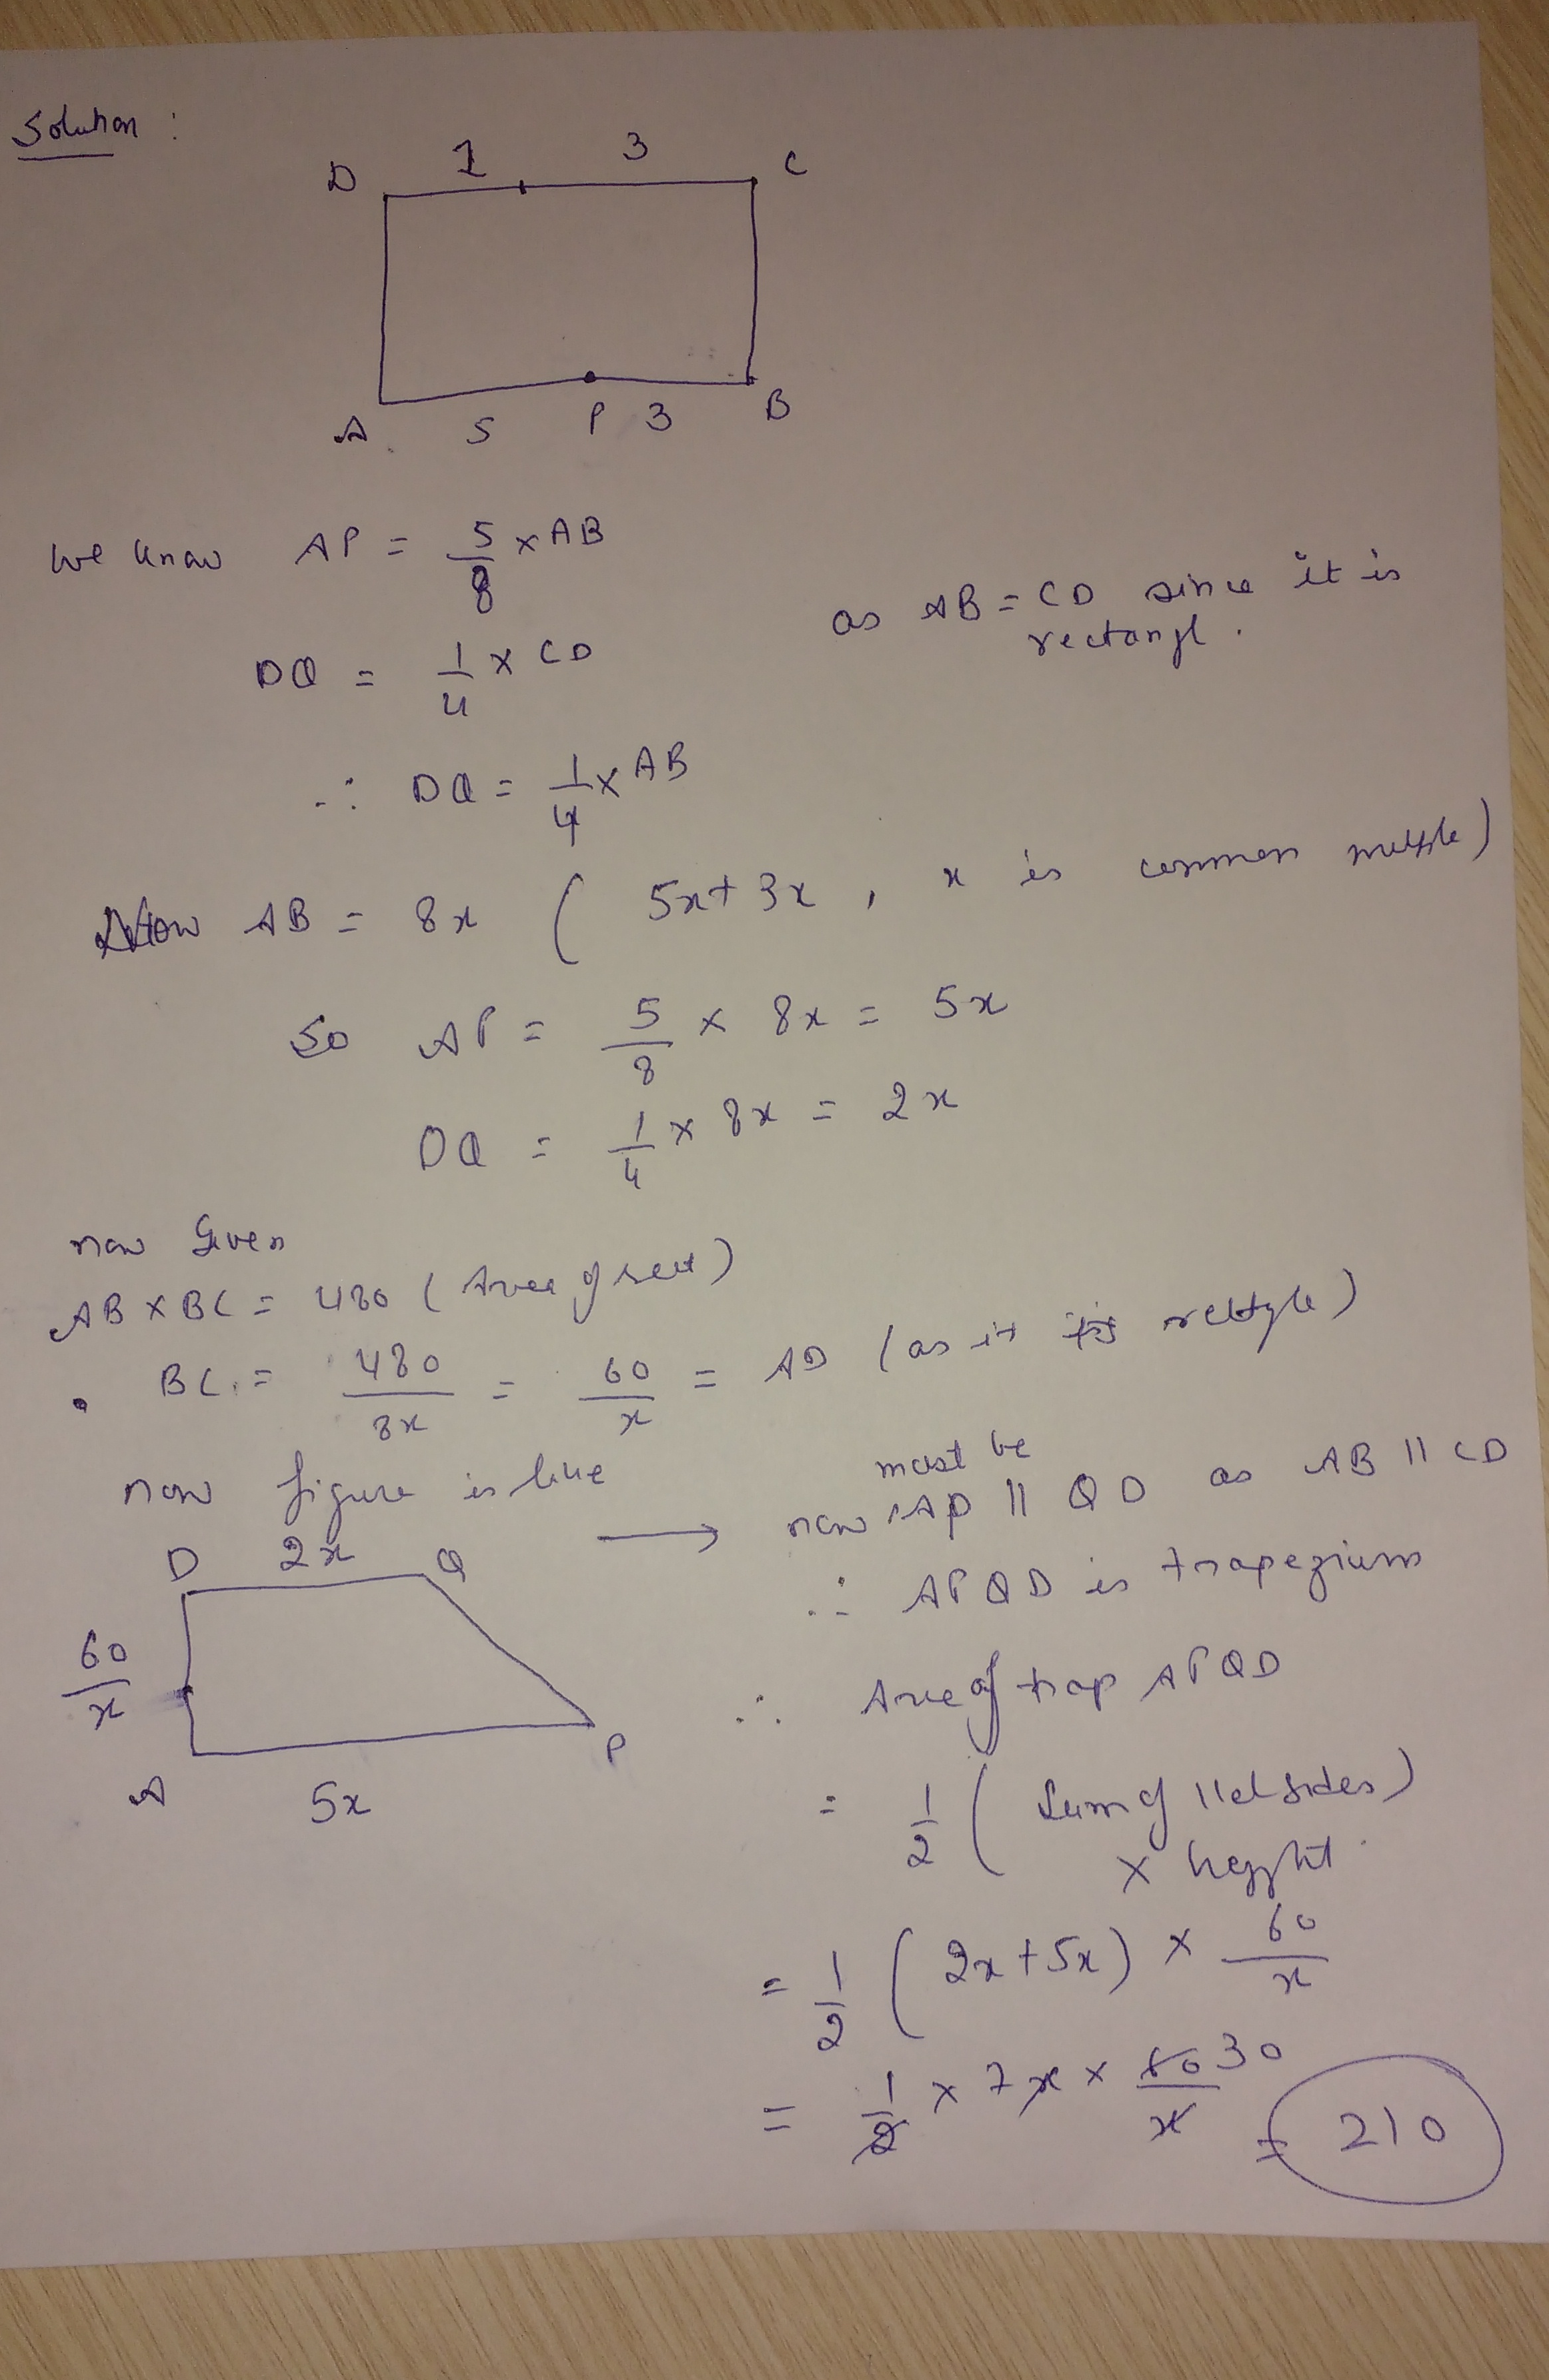 Solution :
D 1 3 C
A 5 P 3 B
we know AP = 5/8 × AB
as AB = CD since it is
rectangl.
DQ = 1/4 × CD
∴ DQ = 1/4 × AB
Now AB = 8x ( 5x + 3x , x is common multple)
So AP = 5/8 × 8x = 5x
DQ = 1/4 × 8x = 2x
now Given
AB × BC = 480 ( Area of rect)
BC = 480/8x = 60/x = AD (as it is
now figure is like
D 2x Q
60/x
A 5x P
→ now must be AP || QD as AB || CD
∴ APQD is trapezium
∴ Area of trap APQD
= 1/2 ( Sum of ||el sides)
× height
= 1/2 ( 2x + 5x) × 60/x
= 1/2 × 7x × 60/x 30 = 210